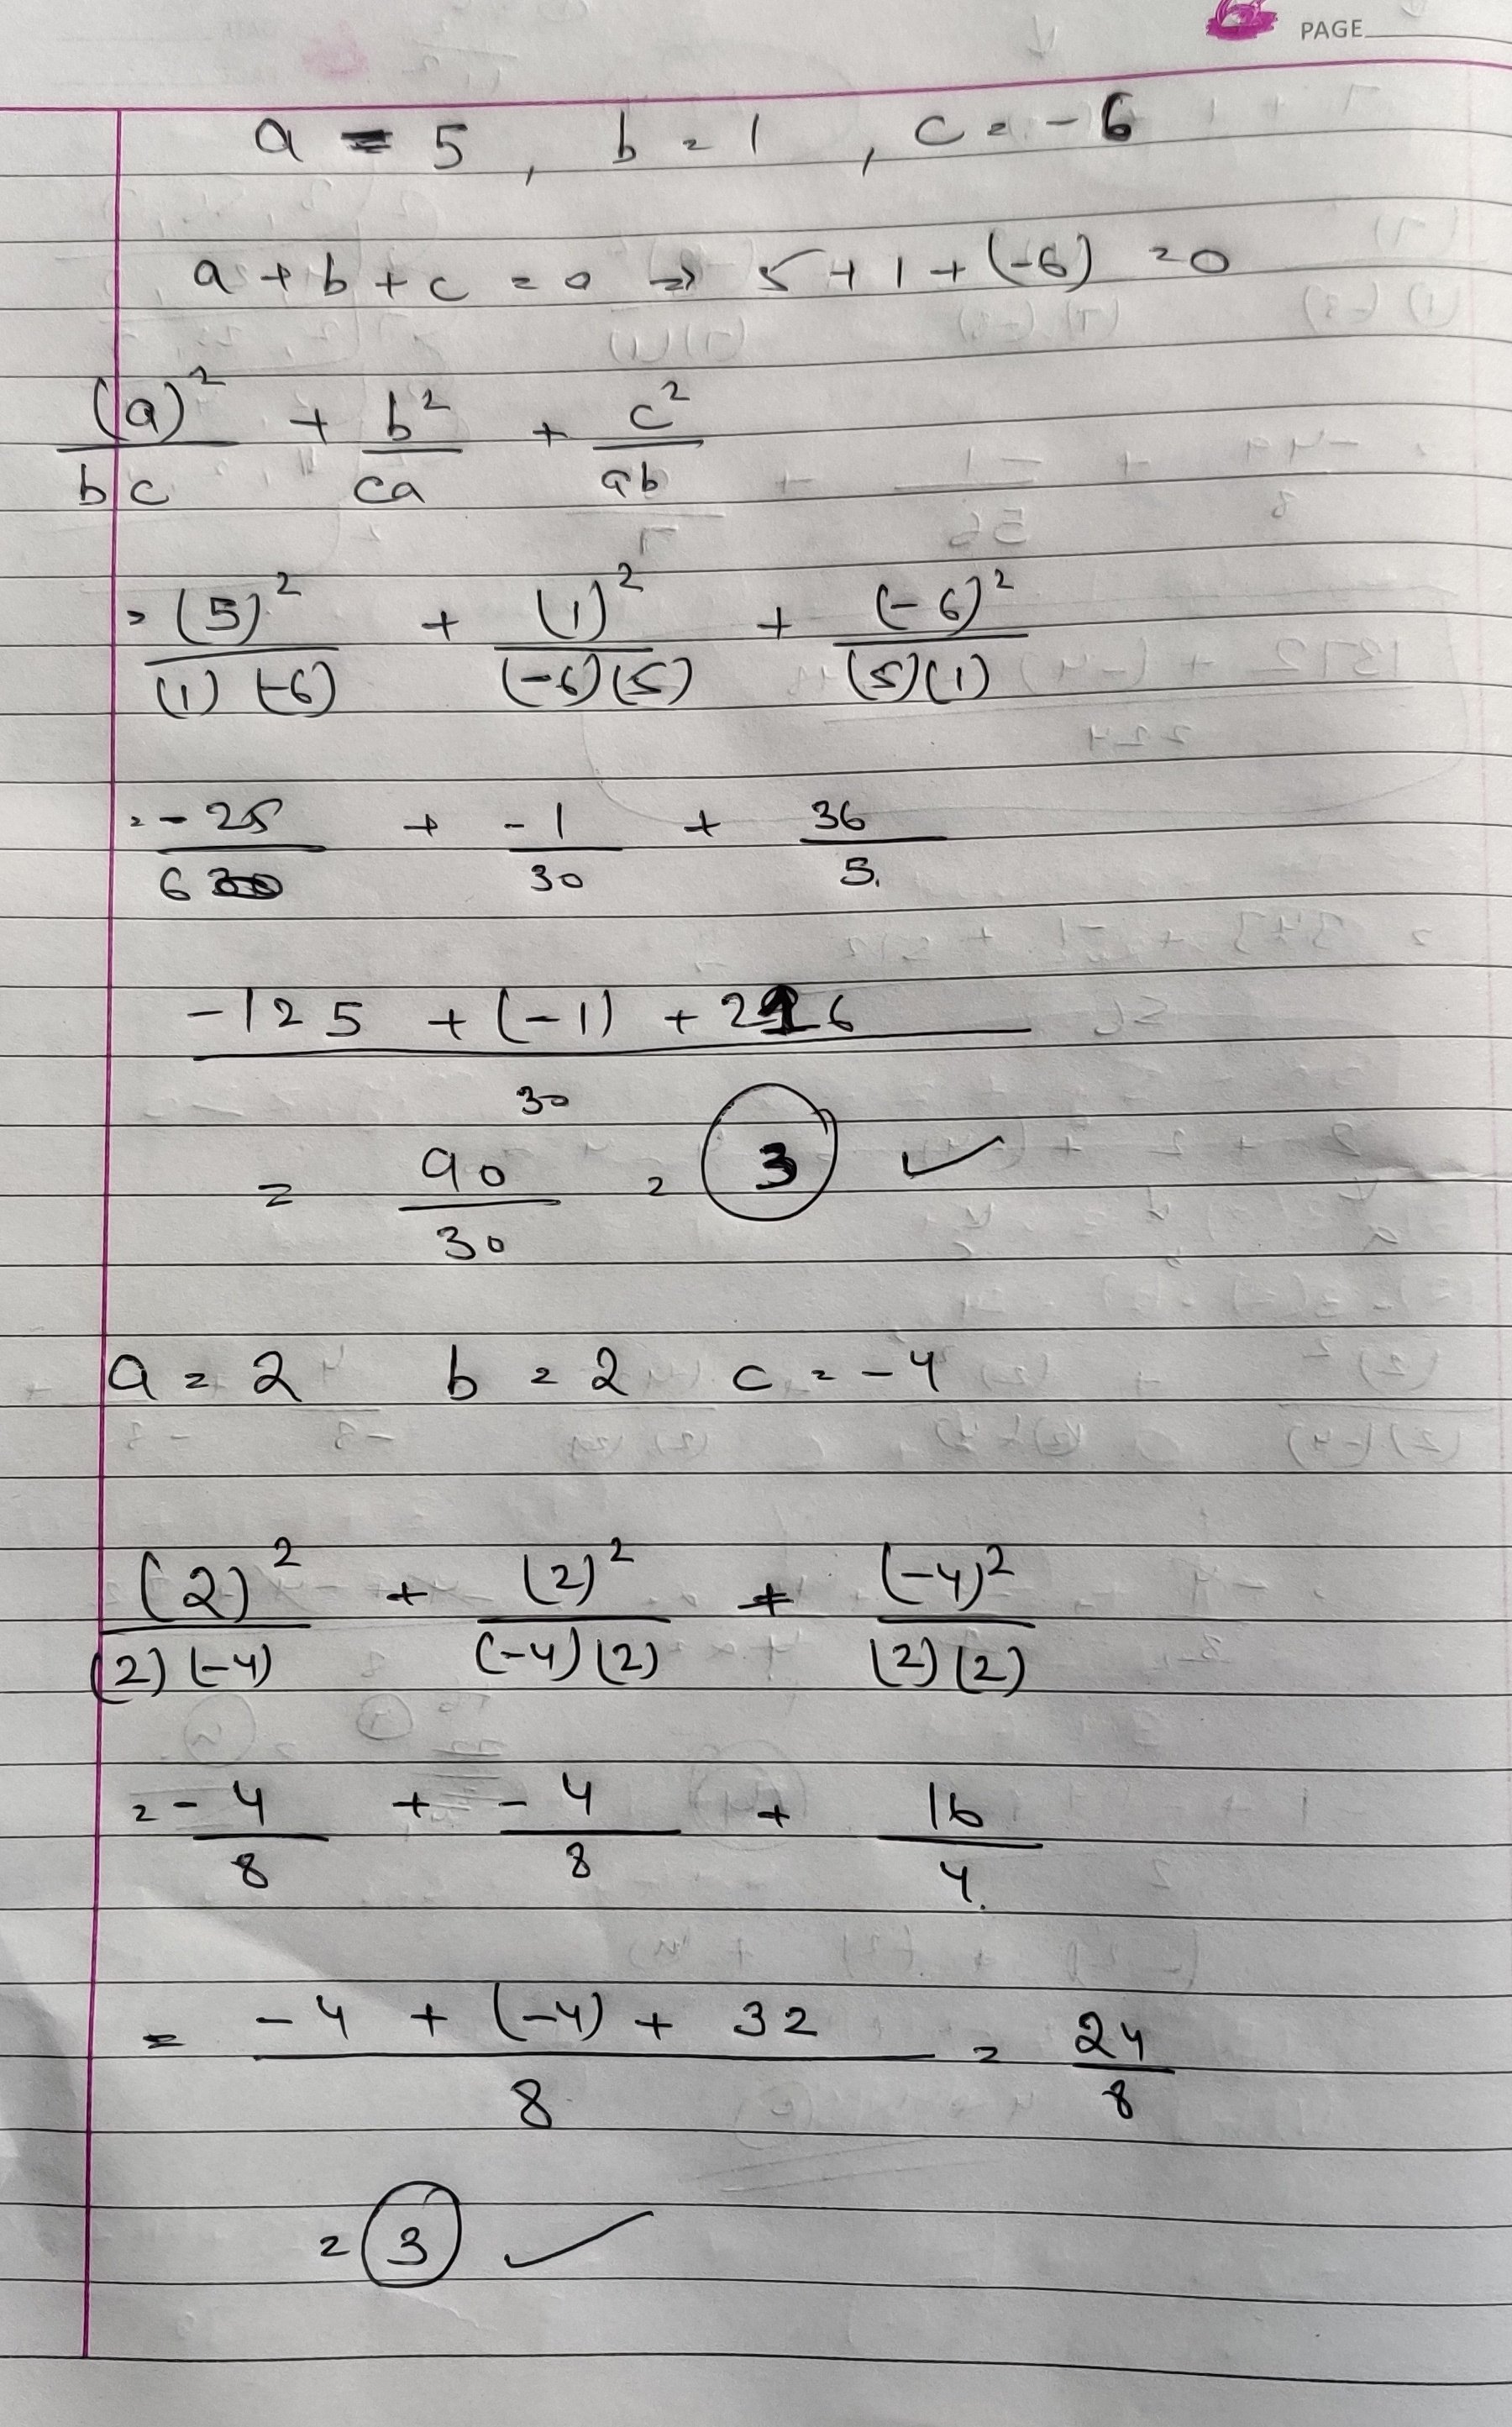 PAGE
a = 5 , b = 1 , c = - 6
a + b + c = 0 => 5 + 1 + (-6) = 0
(a)²/bc + b²/ca + c²/ab
= (5)²/(1)(-6) + (1)²/(-6)(5) + (-6)²/(5)(1)
= -25/6 + -1/30 + 36/5
-125 + (-1) + 216/30
= 90/30 = 3 ✓
a = 2 b = 2 c = -4
(2)²/(2)(-4) + (2)²/(-4)(2) + (-4)²/(2)(2)
= -4/8 + -4/8 + 16/4
= -4 + (-4) + 32/8 = 24/8
= 3 ✓